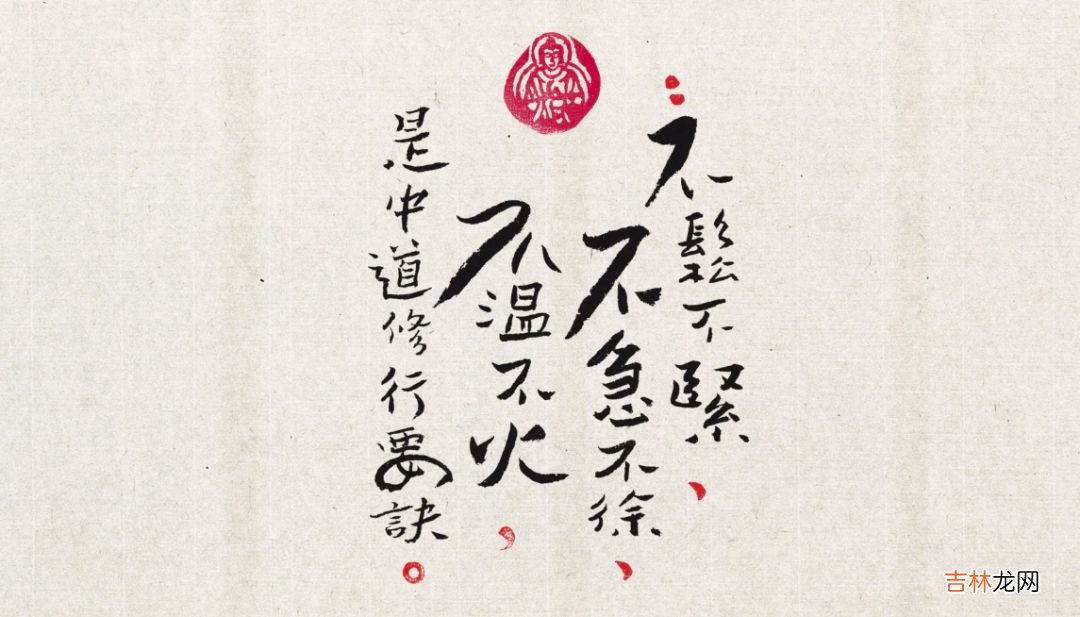 不鬆不緊、
不急不徐、
不温不火，
是中道修行要訣。
吉林龙网